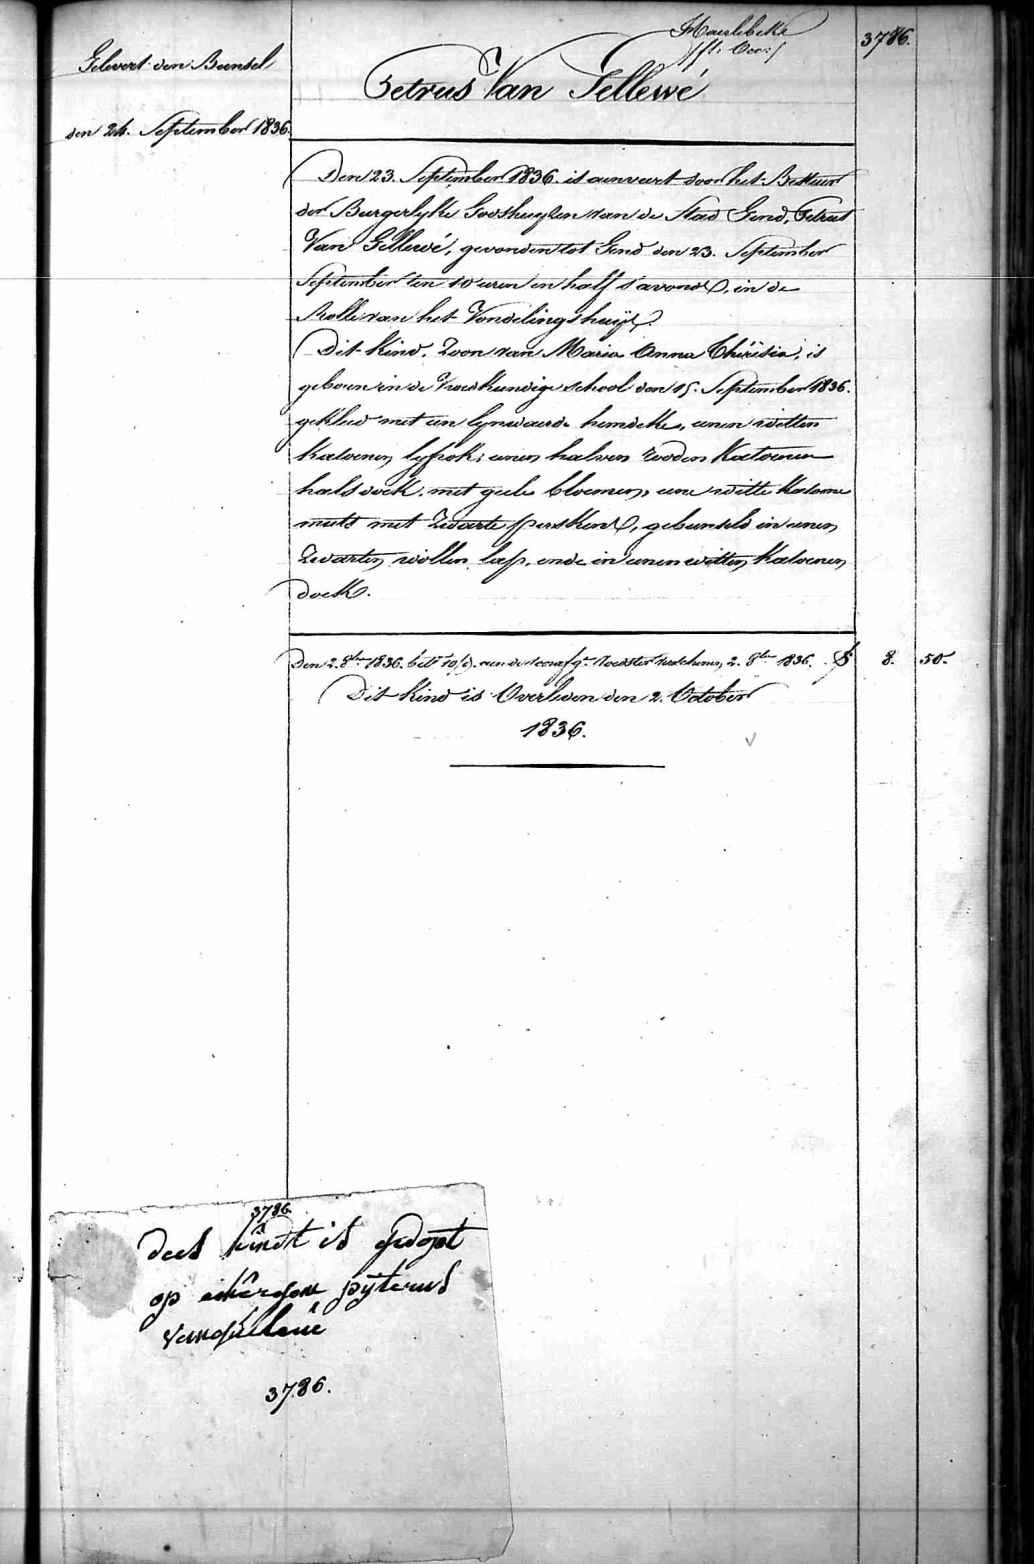 Haerlebeke
3786.
Gelevert den Bunsel
den 24. September 1836.
Petrus Van Gellewé
Den 23. September 1836. is aenveert door het Bestuur
der Burgerlyke Godshuyzen van de Stad Gend, Petrus
Van Gellewé, gevonden tot Gend den 23. September
September ten 10 uren en half s'avonds, in de
Rolle van het Vondelingshuys.
Dit kind, Zoon van Maria Anna Thérèsia, is
geboren in de Vroedkundige school den 15. September 1836.
gekleed met een lynwaerde hemdeke, eenen witten
katoenen lyfrok; eenen halven rooden katoenen
halsdoek, met geele bloemen, eene witte katoene
muts met Zwarte perskens, gebunseld in eenen
Zwarten wollen lap, ende in eenen witten katoenen
doek.
Den 2. 8ber 1836. 2. 8ber 1836. 8. 50.
Dit kind is Overleden den 2. October
1836.
3786
dees kindt is gedopt
op pijterus
vangellewe
3786.